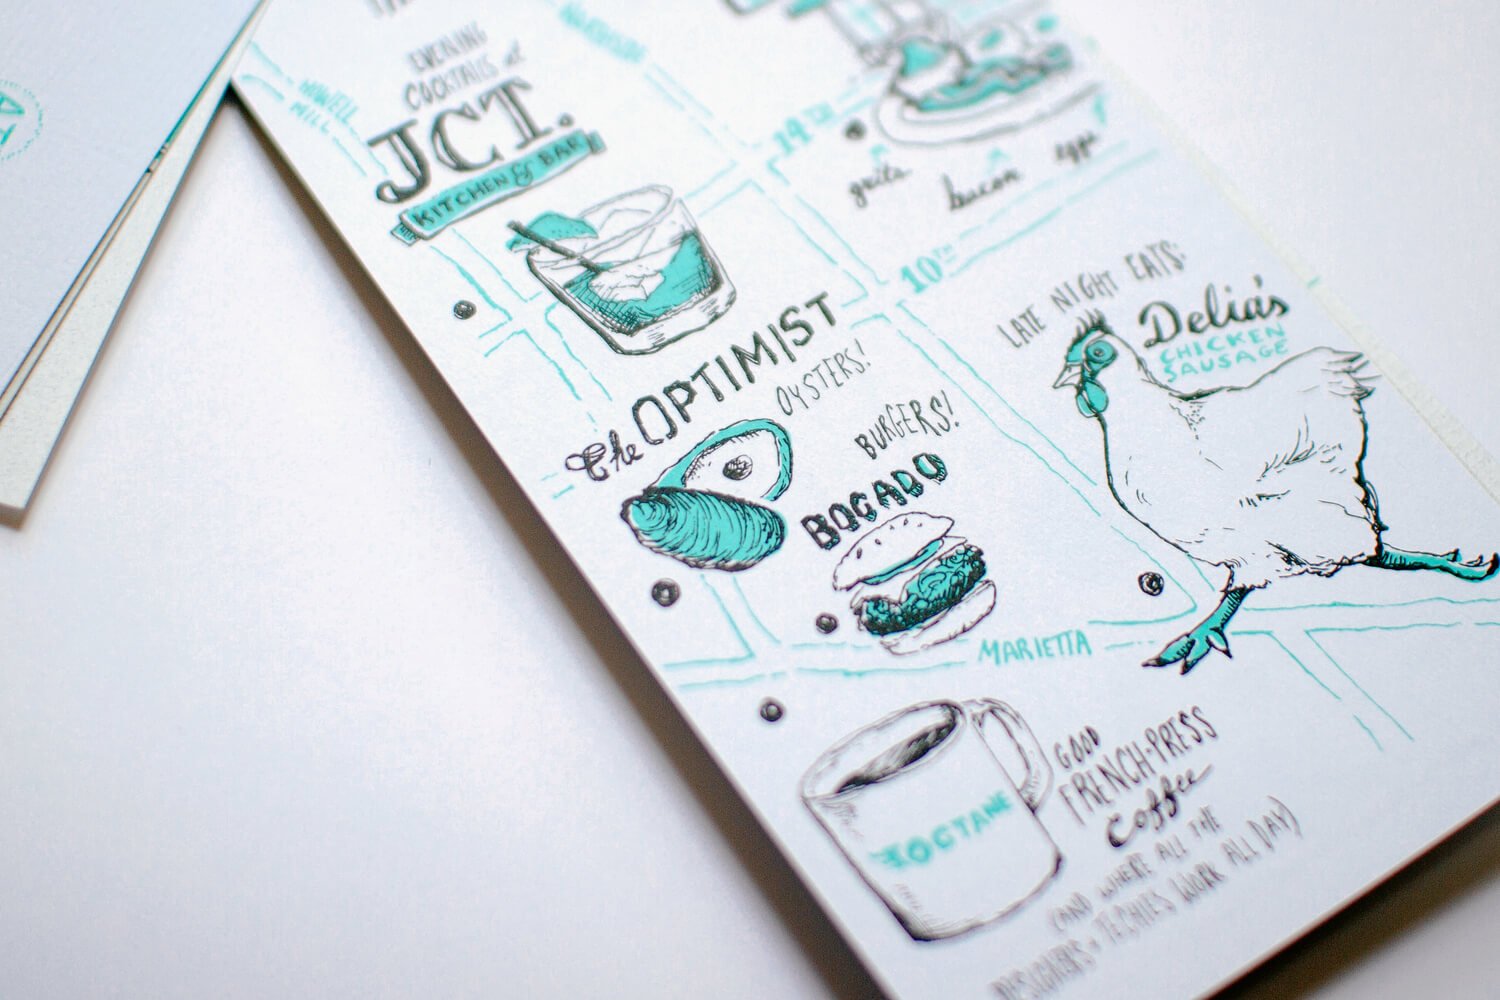 EVENING
COCKTAILS at
JCT.
KITCHEN & BAR
HOWELL
MILL
14TH
grits
bacon
eggs
10TH
The OPTIMIST
OYSTERS!
BURGERS!
BOCADO
LATE NIGHT EATS:
Delia's
CHICKEN
SAUSAGE
MARIETTA
OCTANE
GOOD
FRENCH-PRESS
Coffee
(AND WHERE ALL THE
DESIGNERS + TECHIES WORK ALL DAY)